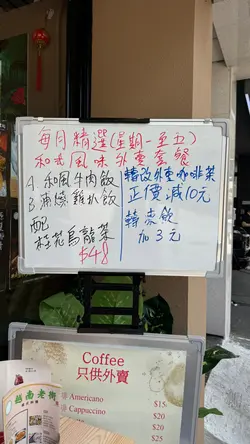 每月精選(星期一至五)
和式風味外賣套餐
A. 和風牛肉飯
B. 蒲燒雞扒飯
配
桂花烏龍茶
$48
轉改外賣咖啡茶
正價減10元
轉凍飲
加3元
Coffee
只供外賣
Americano $15
Cappuccino $20
$20
$25
越南老街